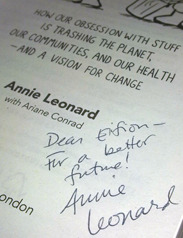 HOW OUR OBSESSION WITH STUFF
IS TRASHING THE PLANET,
OUR COMMUNITIES, AND OUR HEALTH
—AND A VISION FOR CHANGE
Annie Leonard
with Ariane Conrad
Dear Eifion—
For a better
future!
Annie
Leonard
ondon